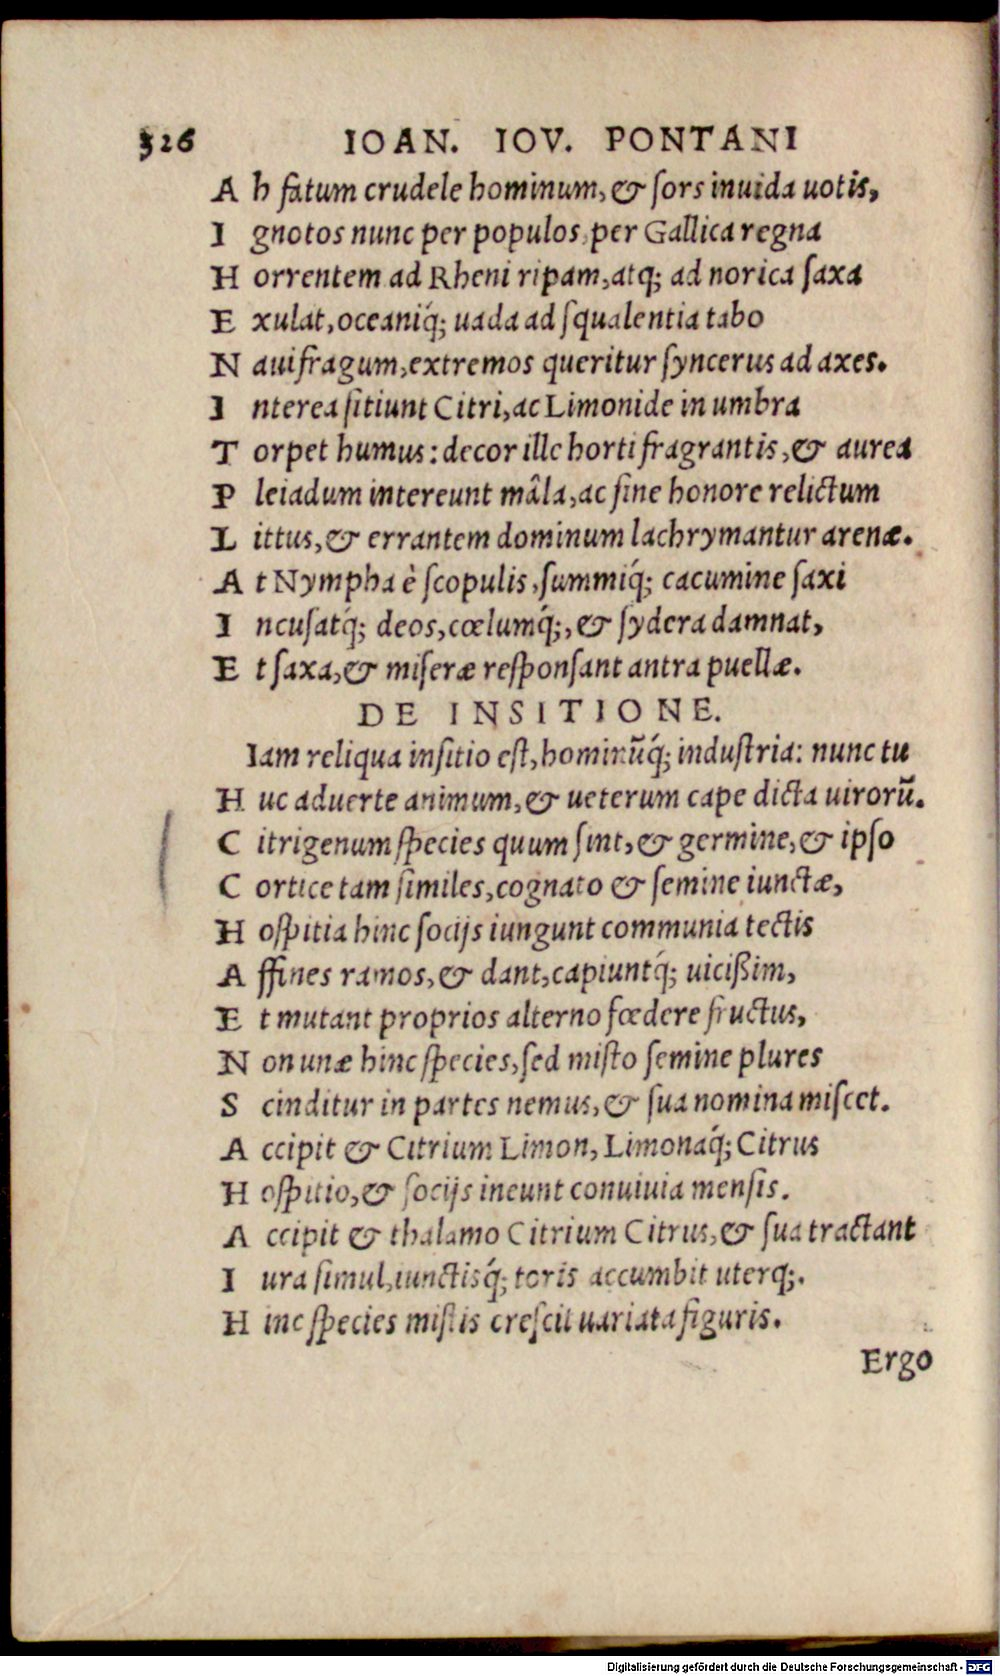 326 IOAN. IOV. PONTANI
A h fatum crudele hominum, & ſors inuida uotis,
I gnotos nunc per populos, per Gallica regna
H orrentem ad Rheni ripam, atq; ad norica ſaxa
E xulat, oceaniq́; uada ad ſqualentia tabo
N auifragum, extremos queritur ſyncerus ad axes.
I nterea ſitiunt Citri, ac Limonide in umbra
T orpet humus: decor ille horti fragrantis, & aurea
P leiadum intereunt mâla, ac ſine honore relictum
L ittus, & errantem dominum lachrymantur arenæ.
A t Nympha è ſcopulis, ſummiq́; cacumine ſaxi
I ncuſatq́; deos, cœlumq́;, & ſydera damnat,
E t ſaxa, & miſeræ reſponſant antra puellæ.
DE INSITIONE.
Iam reliqua inſitio eſt, hominũq́; induſtria: nunc tu
H uc aduerte animum, & ueterum cape dicta uirorũ.
C itrigenum ſpecies quum ſint, & germine, & ipſo
C ortice tam ſimiles, cognato & ſemine iunctæ,
H oſpitia hinc ſocijs iungunt communia tectis
A ffines ramos, & dant, capiuntq́; uicißim,
E t mutant proprios alterno fœdere fructus,
N on unæ hinc ſpecies, ſed miſto ſemine plures
S cinditur in partes nemus, & ſua nomina miſcet.
A ccipit & Citrium Limon, Limonaq́; Citrus
H oſpitio, & ſocijs ineunt conuiuia menſis.
A ccipit & thalamo Citrium Citrus, & ſua tractant
I ura ſimul, iunctisq́; toris accumbit uterq;.
H inc ſpecies miſtis creſcit uariata figuris.
Ergo
Digitalisierung gefördert durch die Deutsche Forschungsgemeinschaft - DFG